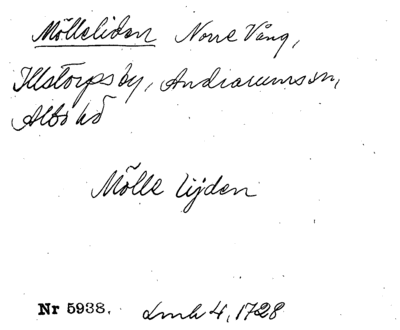 Mölleliden Norre Vång,
Illstorps by, Andrarums sn,
Albo hd
Mölle lijden
Nr 5938. Lmh 4, 1728